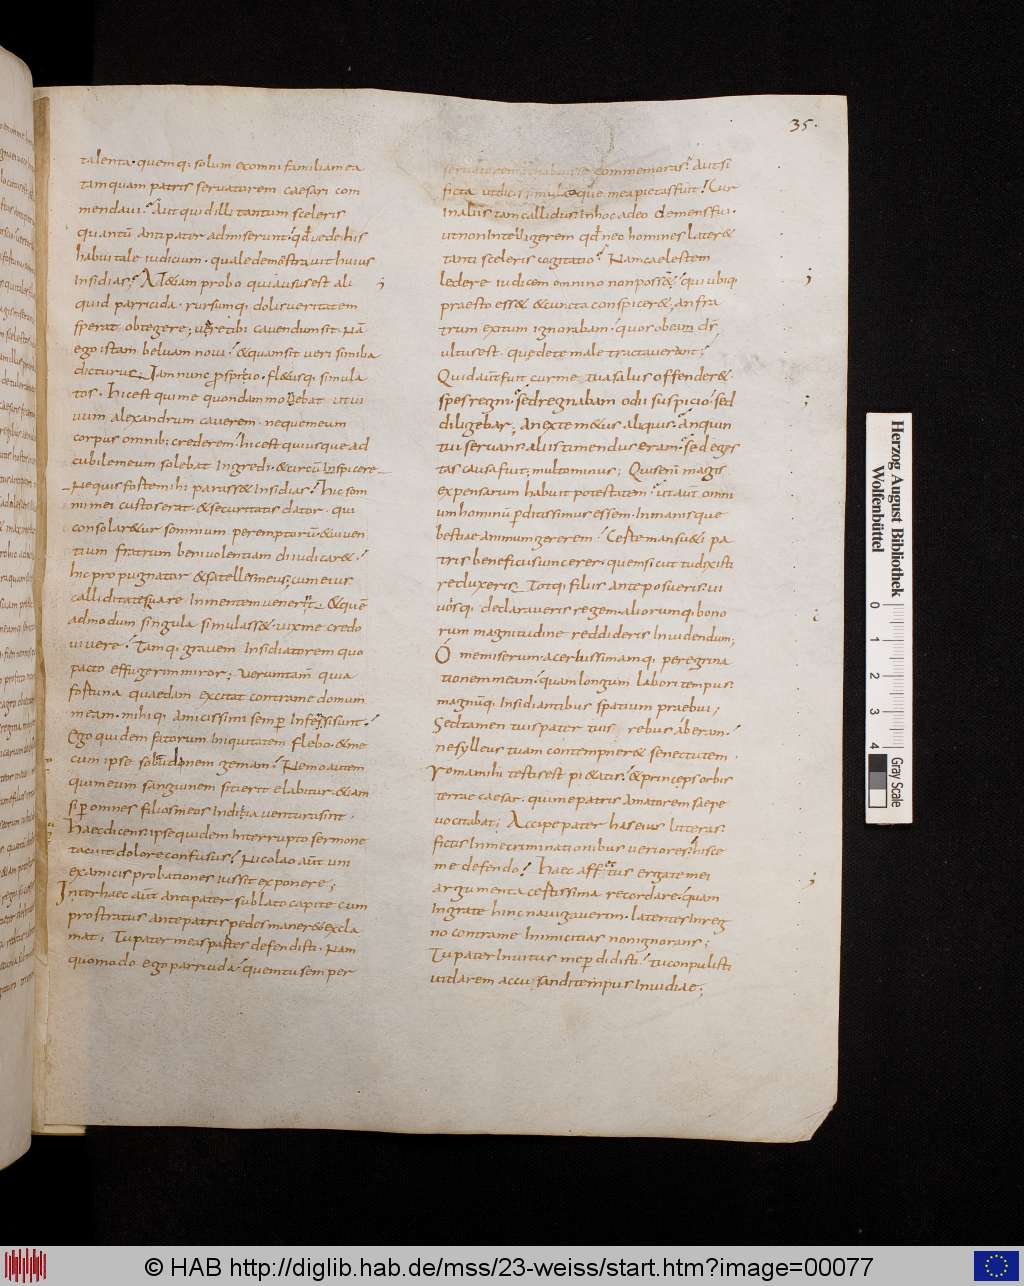 35.
talenta. quem q; solum exomni familia mea
tamquam patris servatorem caesari com
mendavi? Aut quid illi tantum sceleris
quantū antipater admiserunt. qđ vedehis
habui tale iudicium. quale demōstravit huius
Insidias? At &iam probo quia ausus est ali
quid parricida. rursumq; dolis veritatem
sperat obtegere; cavendum sit. Nā
ego istam beluam novi. & quam sit veri similia
dicturus; Iam nunc pspicio. fl&usq; simula
tos. hic est qui me quondam monebat ut vi
vum alexandrum caverem. neque meum
corpus omnib; crederem. hic est qui usque ad
cubile meum solebat Ingredi. & circū Inspicere
Ne quis fostemihi parass& Insidias? hic som
ni mei custos erat. & securitatis dator. qui
consolar&ur somnium peremptorū. & viven
tium fratrum benivolentiam diiudicar&.
hic pro pugnator & satelles meus; cum eius
calliditates Inmentem venerit. & quē
admodum singula simulass&. vix me credo
vivere. Tamq; gravem Insidiatorem quo
pacto effugerim miror; Veruntam̄ quia
fostuna quaedam excitat contra me domum
meam. mihiq; amicissimi semp Infessi sunt.
Ego quidem fatorum Iniquitatem flebo. & me
cum ipse gemam. Nemo autem
qui meum sanguinem sitierit elabitur. & iam
si p omnes filios meos Inditia ventura sint.
haec dicens; ipse quidem Interrupto sermone
tacuit. dolore confusus. Nicolao aūt uni
ex amicis probationes iussit exponere;
Inter haec aūt antipater sublato capite cum
prostratus ante patris pedes maner& excla
mat; Tu pater meas pastes defendisti. Nam
quomodo ego parricida. quem tu semper
servatorem te habuisse commemoras? Aut si
ficta ut dicis simulataque mea pietas fuit. Cur
Inaliis tam callidus. Inhoc adeo demens fui.
ut non Intelligerem qđ nec homines later&
tanti sceleris cogitatio? Nam caelestem
ledere iudicem omnino non poss&. qui ubiq;
praesto ess& & cuncta conspicer&; an fra
trum exitum ignorabam. quos ob eam dr̄
ultus est. que de te male tractaverant;
Quid aūt fuit cur me tua salus offender&.
spes regni. sed regnabam. odii suspicio. sed
diligebar; An ex te m&us aliquis. an quin
tui servans. aliis timendus eram. sed eges
tas causa fuit; multo minus; Qui seni magis
expensarum habuit potestatem. ut aūt omni
um hominū pditissimus essem. Inmanisque
bestiae animum gererem. Ceste mansu&i pa
tris beneficus vincerer. quem sicut tu dixisti
recluxeris. Totq; filiis anteposueris. vi
vosq; declaraveris regem. aliorumq; bono
rum magnitudine reddideris Invidendum;
O me miserum. acerbissimamq; peregrina
tionem meam. quam longum labori tempus.
magnūq; Insidiantibus spatium praebui;
Sed tamen tuis pater tuis rebus aberam.
nesylleus tuam contempner& senectutem.
Roma mihi testis est pi&atis. & princeps orbis
terrae caesar. qui me patris amatorem saepe
vocitabat; Accipe pater has eius litteras.
fictis Inme criminationibus veriores. hisce
me defendo. haec affectus erga te mei
argumenta cestissima recordare. quam
Ingrate hinc navigaverim. latentes Inreg
no contra me Inimicitias non ignorans;
Tu pater Invitus me pdidisti. tu compulisti
uti darem accusandi tempus Invidiae;
Herzog August Bibliothek
Wolfenbüttel
0 1 2 3 4
Gray Scale
© HAB http://diglib.hab.de/mss/23-weiss/start.htm?image=00077